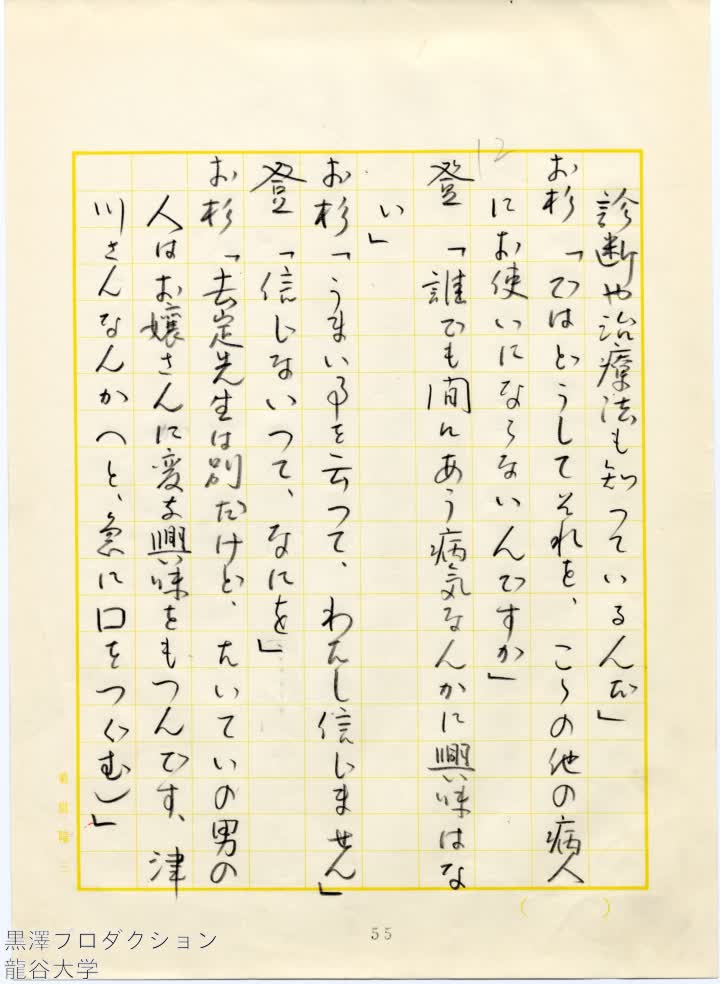 12
診断や治療法も知つているんだ」
お杉「ではどうしてそれを、こゝの他の病人
にお使いにならないんですか」
登　「誰でも間にあう病気なんかに興味はな
い」
お杉「うまい事を云つて、わたし信じません」
登　「信じないつて、なにを」
お杉「去定先生は別だけど、たいていの男の
人はお嬢さんに変な興味をもつんです、津
川さんなんか（と、急に口をつぐむ）」
55
黒澤プロダクション
龍谷大学